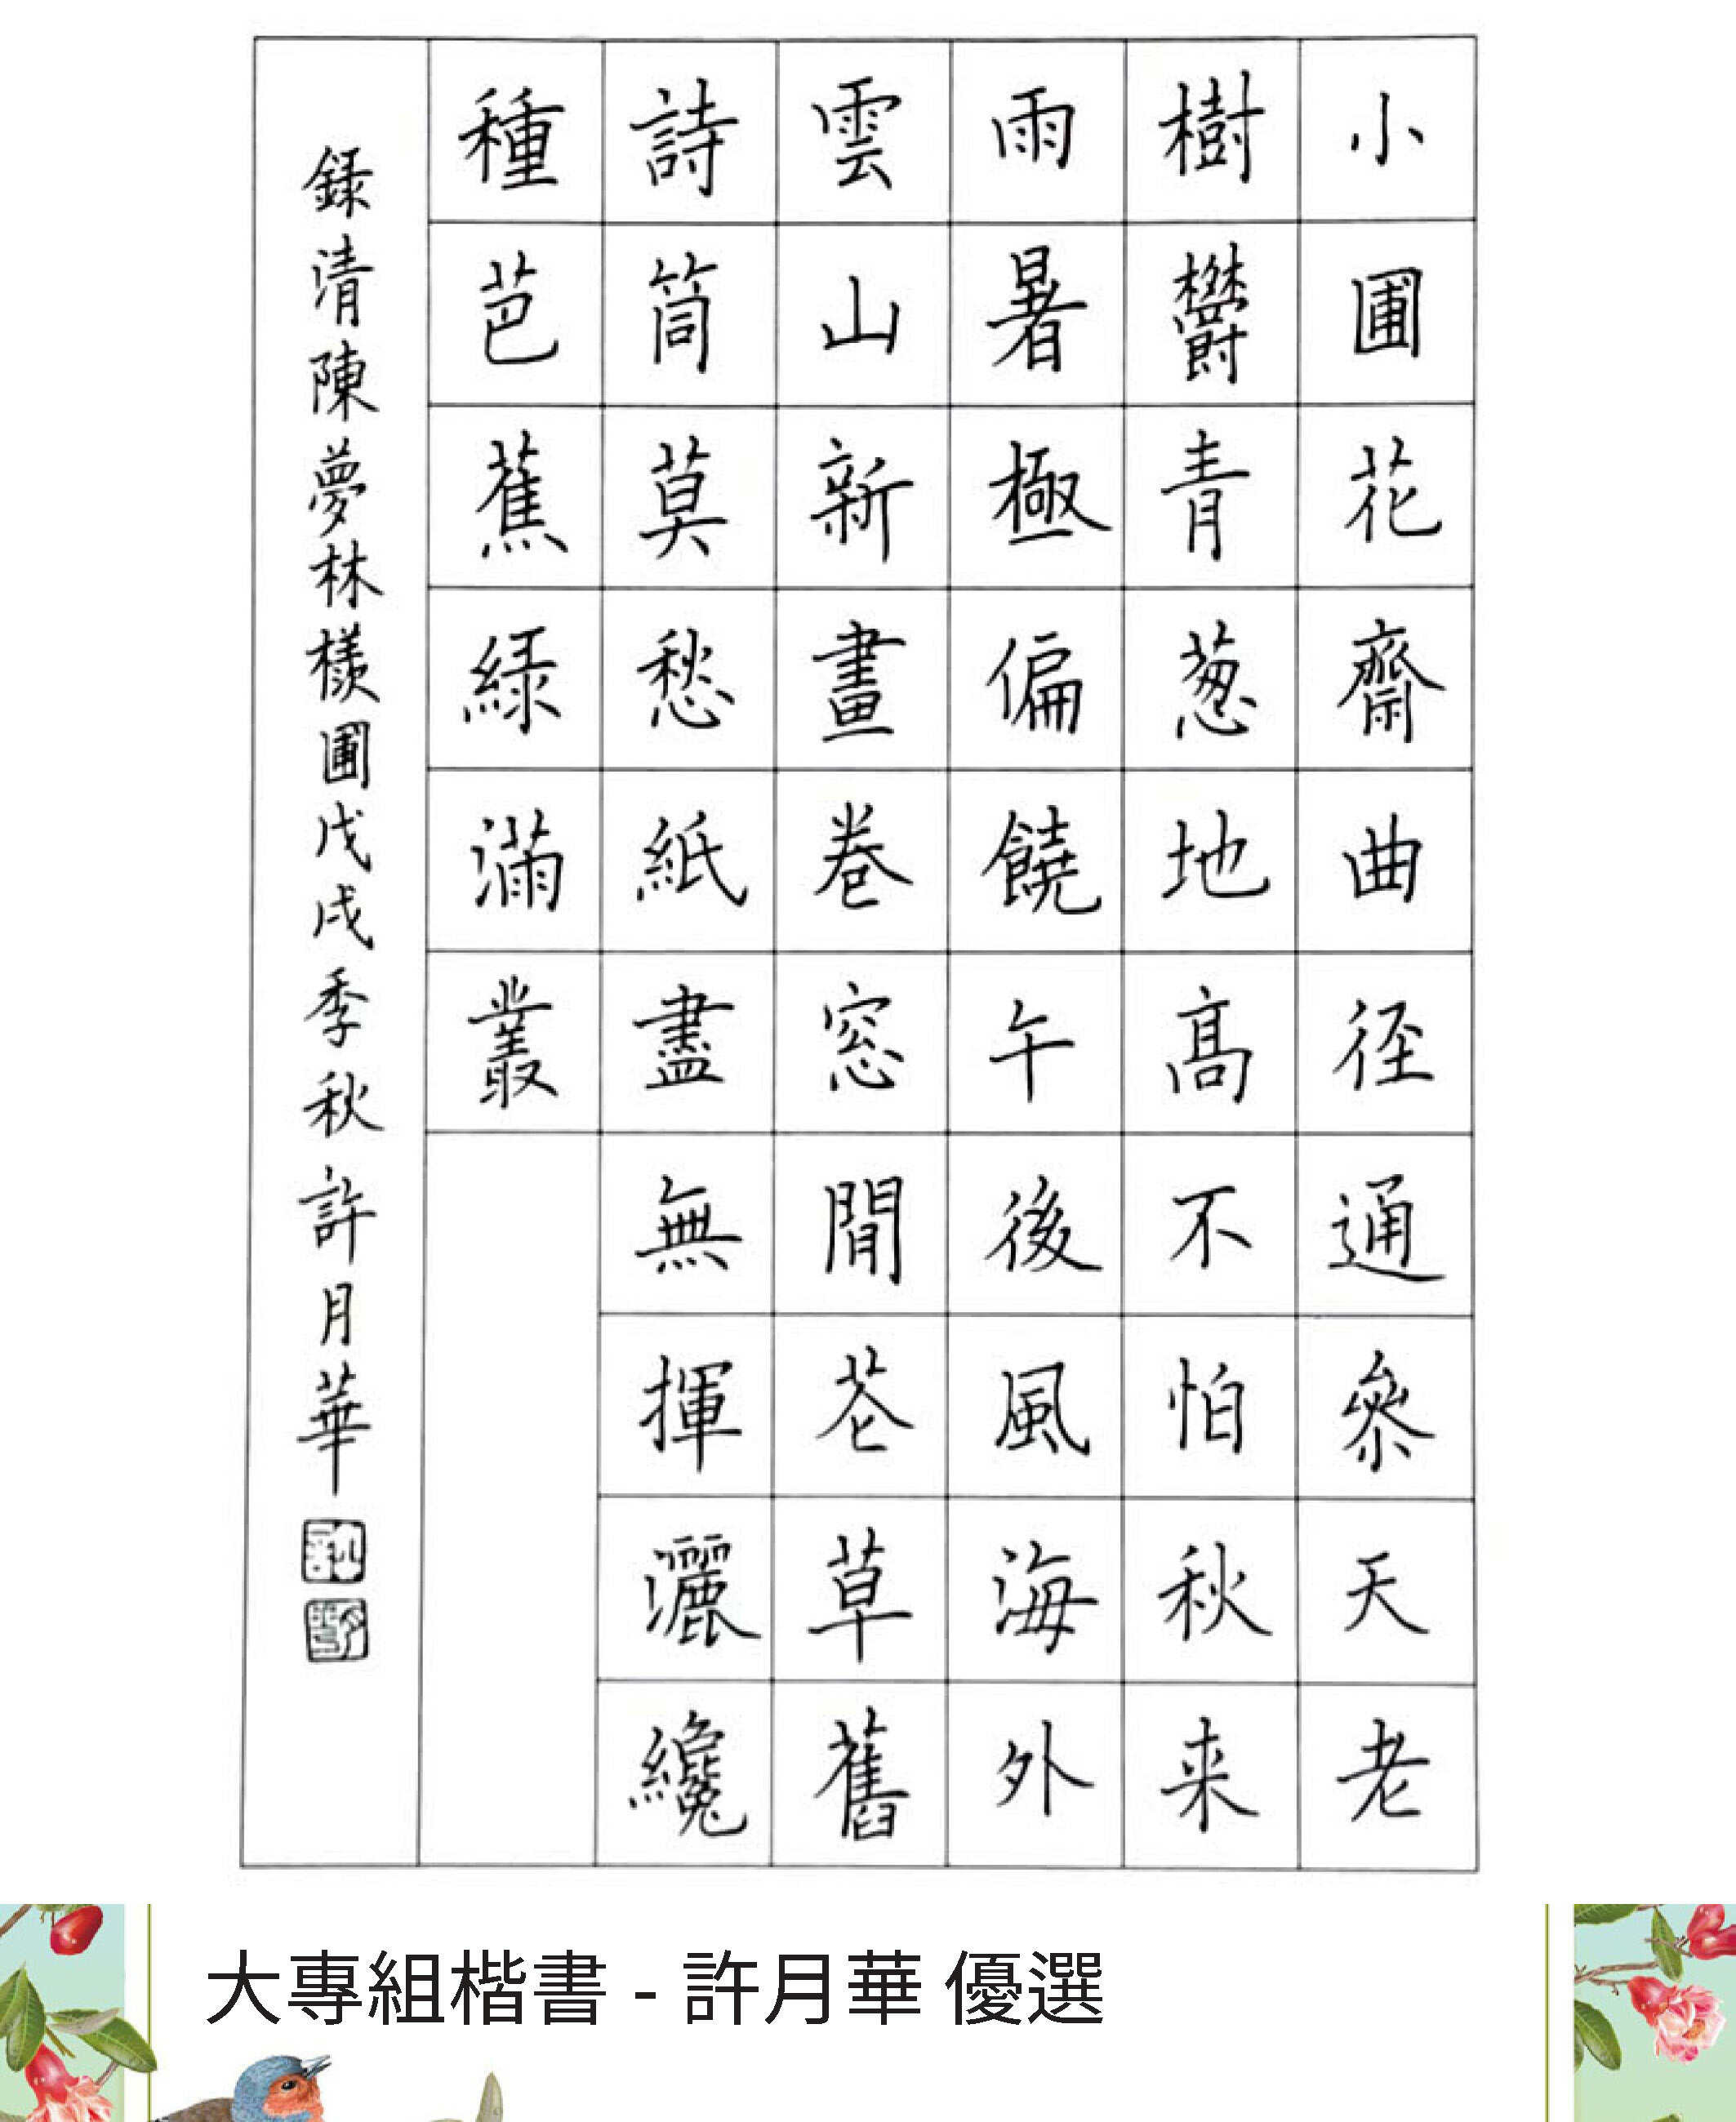 小圃花齋曲径通參天老
樹欝青葱地髙不怕秋来
雨暑極偏饒午後風海外
雲山新畫卷窓閒苍草舊
詩筒莫愁紙盡無揮灑纔
種芭蕉緑滿叢
錄清陳夢林檨圃戊戌季秋許月華
大專組楷書 - 許月華 優選